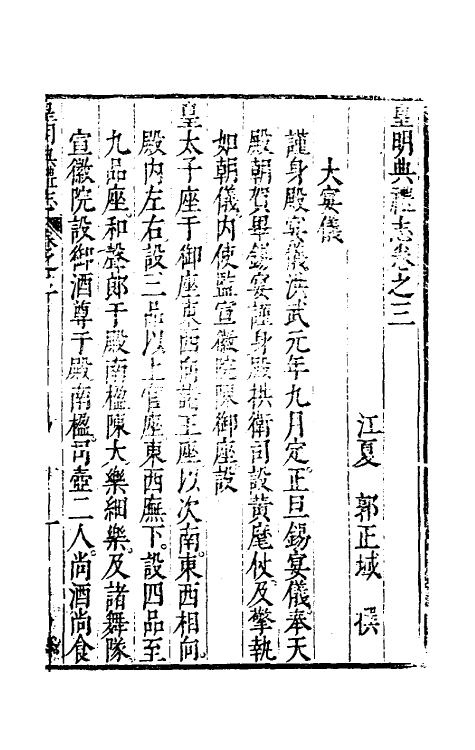 皇明典禮志卷之三
江夏 郭正域 撰
大宴儀
謹身殿宴儀洪武元年九月定正旦錫宴儀奉天
殿朝賀畢錫宴謹身殿拱衛司設黃麾仗及擎執
如朝儀內使監宣徽院陳御座設
皇太子座于御座東西向諸王座以次南東西相向
殿內左右設三品以上官座東西廡下設四品至
九品座和聲郎于殿南楹陳大樂細樂及諸舞隊
宣徽院設御酒尊于殿南楹司壺二人尚酒尚食
皇明典禮志 卷之三